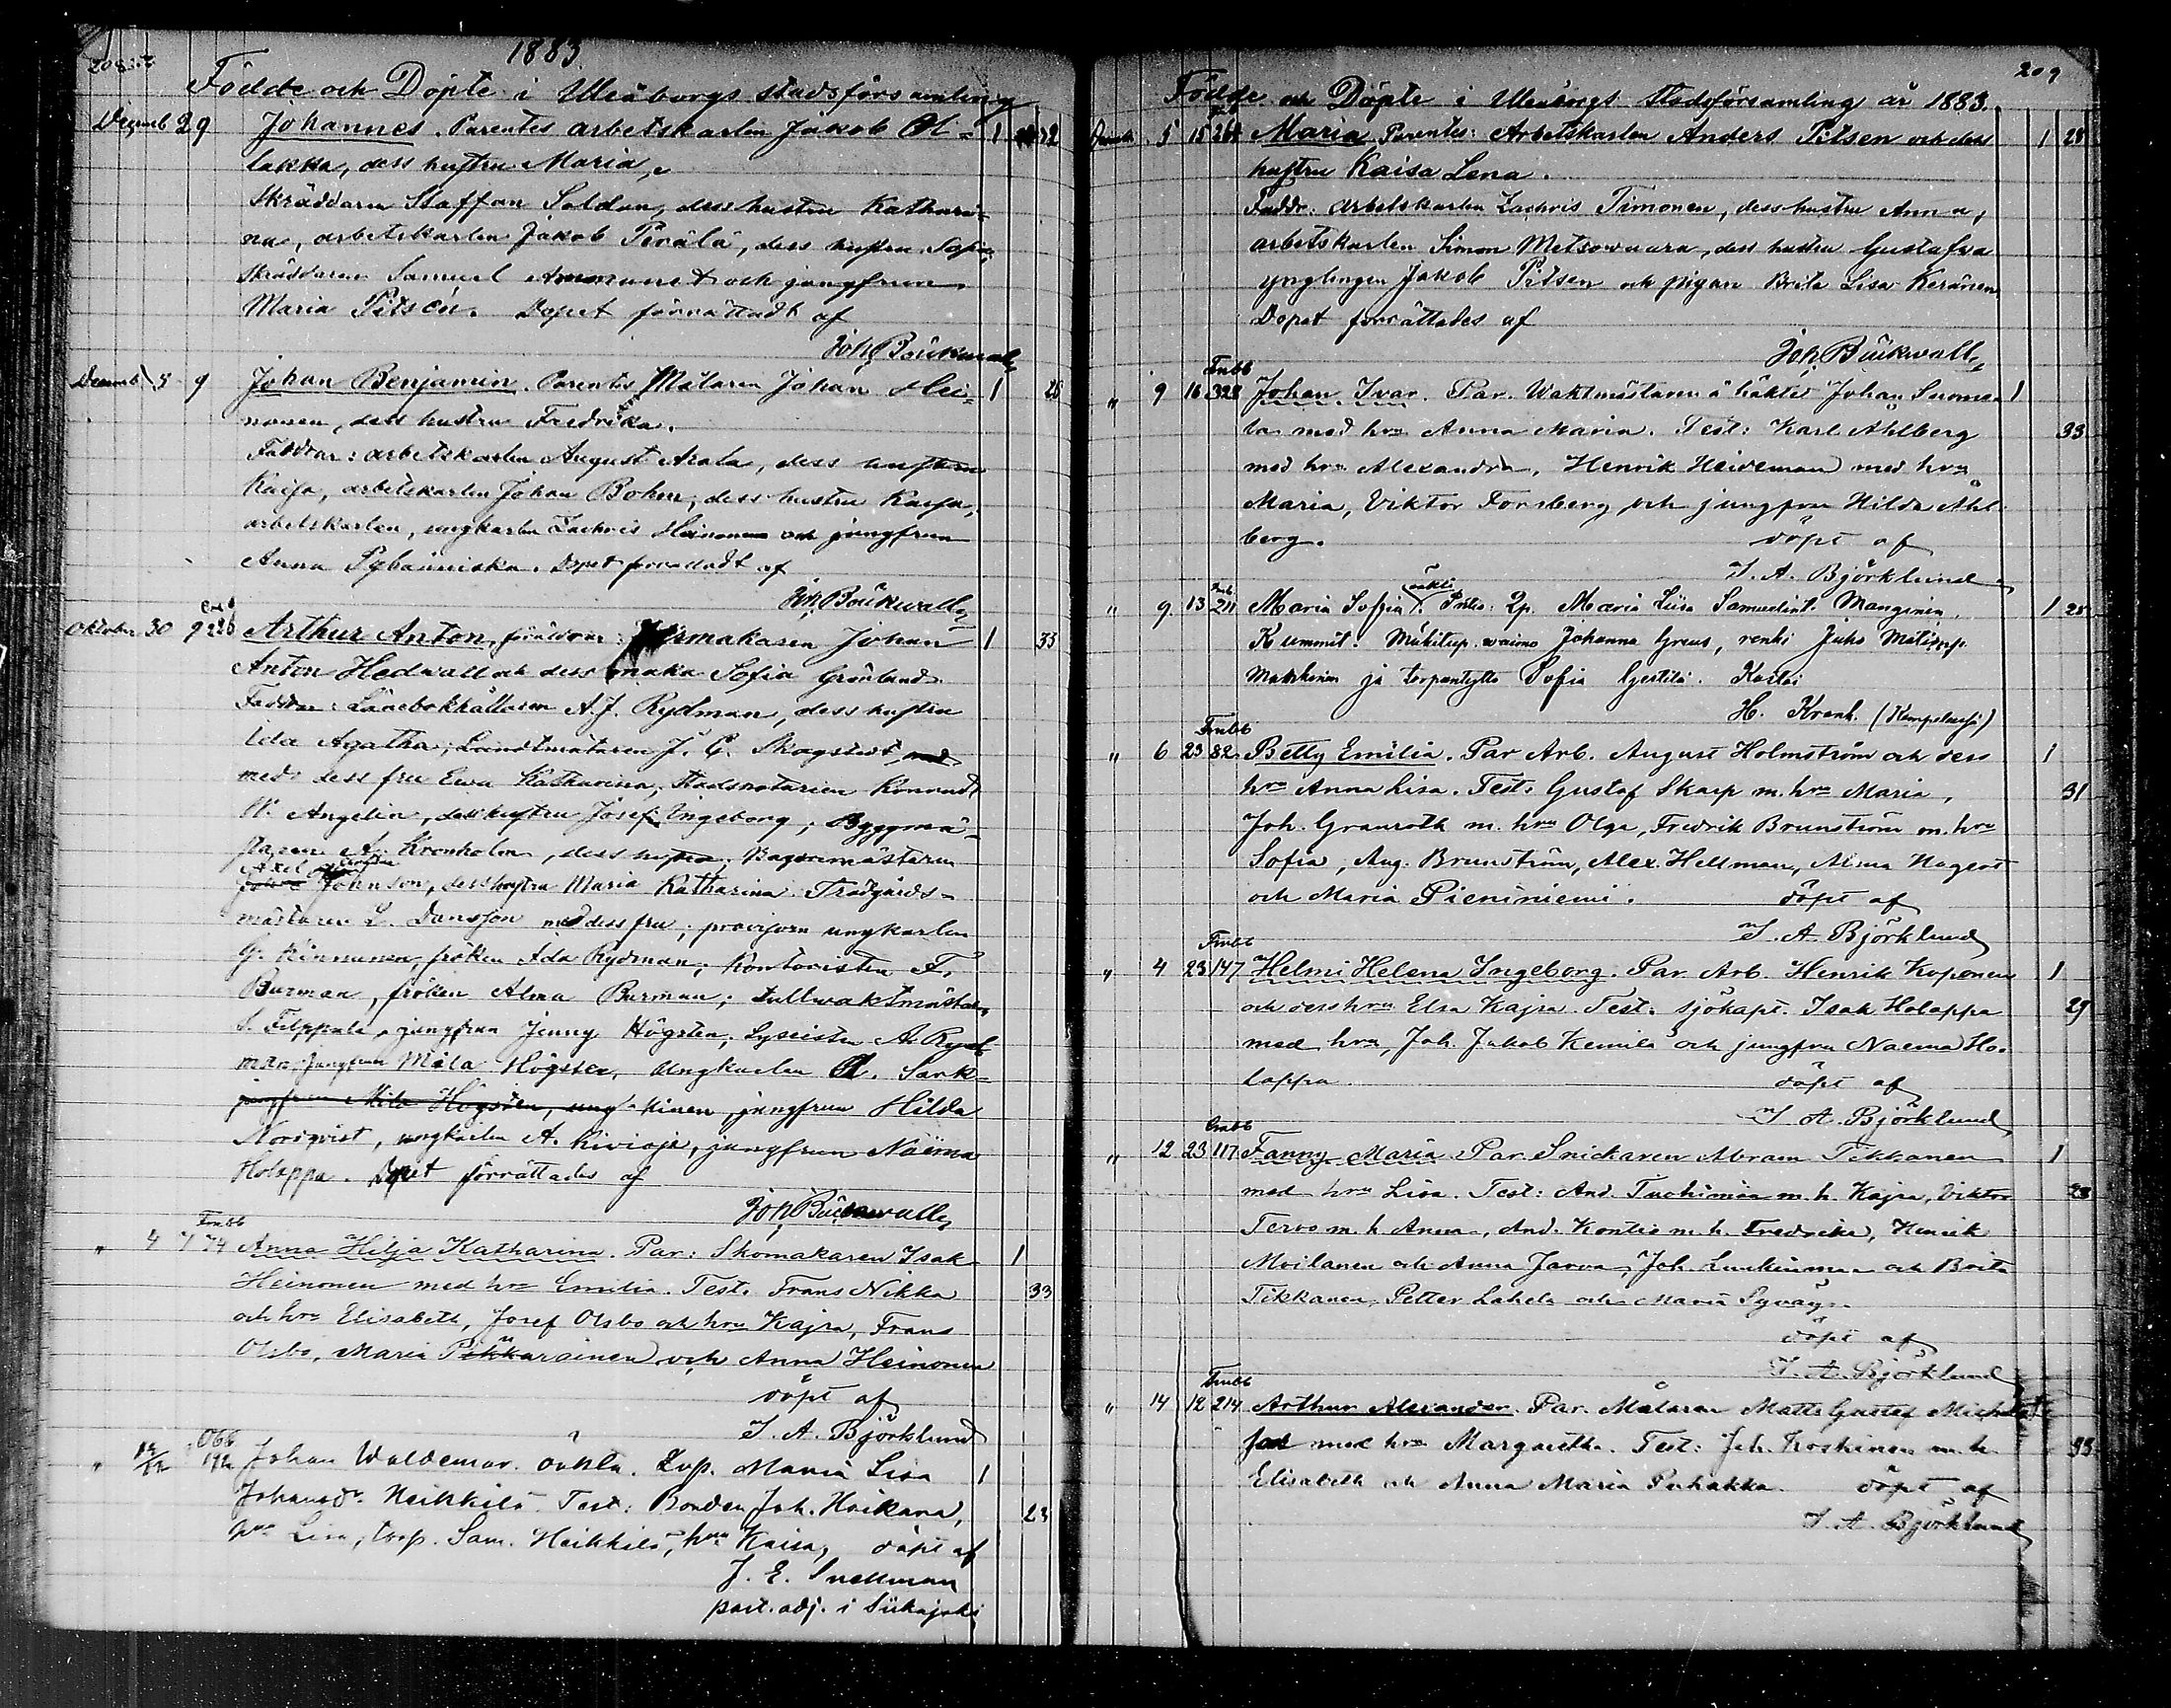 208
1883.
Födde och Döpte i Uleåborgs stadsförsamling
Decemb 29 Johannes. Parentes arbetskarlen Jakob Al- 1 32
lakka, dess hustru Maria,
Skräddaren Staffan Soldan, dess hustru Kathari-
na, arbetskarlen Jakob Perälä, dess hustru Sofia,
Skräddaren Samuel och jungfrun
Maria Pitsén. Dopet förrättadt af
Joh. Bäckwall
Decemb 5 9 Johan Benjamin. Parentes Målaren Johan Hei- 1 26
nonen, dess hustru Fredrika.
Faddrar: arbetskarlen August Arala, dess hustru
Kaisa, arbetskarlen Johan Bohm, dess hustru Kaisa,
arbetskarlen, ungkarlen Zachris Heinonen och jungfrun
Anna . Dopet förrättadt af
Joh. Bäckwall
Oktober 30 9 226 Arthur Anton, föräldrar: Urmakaren Johan 1 33
Anton Hedwall och dess maka Sofia Grönlund
Faddrar: Lånebokhållaren A. J. Rydman, dess hustru
Ida Agatha; Landtmätaren J. G. Skogstedt
med dess fru Ewa Katharina, Stadsnotarien Konrad
W. Angelin, dess hustru Josef. Ingeborg; Byggmä-
staren A. Kronholm, dess hustru, Bagaremästaren
Axel
Johnson, dess hustru Maria Katharina. Trädgårds-
mästaren L. Dansson med dess fru; provisorn ungkarlen
G. Kinnunen, fröken Ada Rydman; Kontoristen F.
Burman, fröken Alma Burman; tullwaktmästaren
S. Filppula, jungfrun Jenny Högsten, Lyseisten A. Ryd-
man, jungfrun Mila Högsten, Ungkarlen A. Sark-
jungfrun Mila Högsten, ung kinen, jungfrun Hilda
Norqvist, ungkarlen A. Kivioja, jungfrun Naima
Holappa. Dopet förrättades af
Joh. Bäckwall
Frnbb
" 4 7 74 Anna Hilja Katharina. Par: Skomakaren Isak 1
Heinonen med hru Emilia. Test. Frans Nikka 33
och hru Elisabeth, Josef Olsbo och hru Kajsa, Frans
Olsbo, Maria och Anna Heinonen
döpt af
J. A. Björklund
" Obb 192 Johan Waldemar. oäkta. Lösp. Maria Lisa 1
Johansdr Heikkilä. Test: Bonden Joh. Haikara, 23
hru Lisa, torp. Sam. Heikkilä, hru Kaisa, döpt af
J. E. Snellman
past. adj. i Siikajoki
209
Födde och Döpte i Uleåborgs Stadsförsamling år 1883.
Decemb. 5 15 268 Maria Parentes: Arbetskarlen Anders Pitsen och dess 1 28
hustru Kaisa Lena.
Faddr. arbetskarlen Zachris Timonen, dess hustru Anna,
arbetskarlen Simon Metsowaara, dess hustru Gustafva
ynglingen Jakob Pitsen och pigan Brita Lisa Keränen
Dopet förrättades af
Joh. Bäckwall
Frnbb
" 9 16 328 Johan Ivar. Par. Waktmästaren å häktet Johan Suoma- 1
la med hru Anna Maria. Test: Karl Ahlberg 33
med hru Alexandra, Henrik Heideman med hru
Maria, Viktor Forsberg och jungfrun Hilda Ahl-
berg. döpt af
J. A. Björklund
" 9. 13 211 Maria Sofia oäkta. Prtes: Lp. Maria Liisa Samuelint. Manginen, 1 25
Kummit: Mäkitup. waimo Johanna Greus, renki Juho Matinp.
ja torpantyttö Sofia . Kastoi
H. Krank. (Kempeleessä)
Frnbb
" 6 23 82 Betty Emilia. Par Arb. August Holmström och dess 1
hru Anna Lisa. Test. Gustaf Skarp m. hru Maria, 31
Joh. Granroth m. hru Olga, Fredrik Brunström m. hru
Sofia, Aug. Brunström, Alex. Hellman, Alma Nagert
och Maria Pieniniemi. döpt af
J. A. Björklund
Frnbb
" 4 23 147 Helmi Helena Ingeborg. Par. Arb. Henrik Koponen 1
och dess hru Elsa Kajsa. Test. sjökapt. Isak Holappa 29
med hru, Joh. Jakob Kemilä och jungfru Naema Ho-
lappa. döpt af
J. A. Björklund
" 12 23 117 Fanny Maria Par. Snickaren Abram Tikkanen 1
med hru Lisa. Test: And. Tuohimaa m. h. Kajsa, Viktor 28
Tervo m. h. Anna, And. Kontio m. h. Fredrika, Henrik
Moilanen och Anna Jarva, Joh. Lunkinmaa och Brita
Tikkanen, Petter Lahela och Maria Syväys.
döpt af
J. A. Björklund
Frnbb
" 14 12 214 Arthur Alexander. Par. Målaren Matts Gustaf Michels-
son med hru Margaretha. Test: Joh. Koskinen m. h. 33
Elisabeth och Anna Maria Puhakka. döpt af
J. A. Björklund